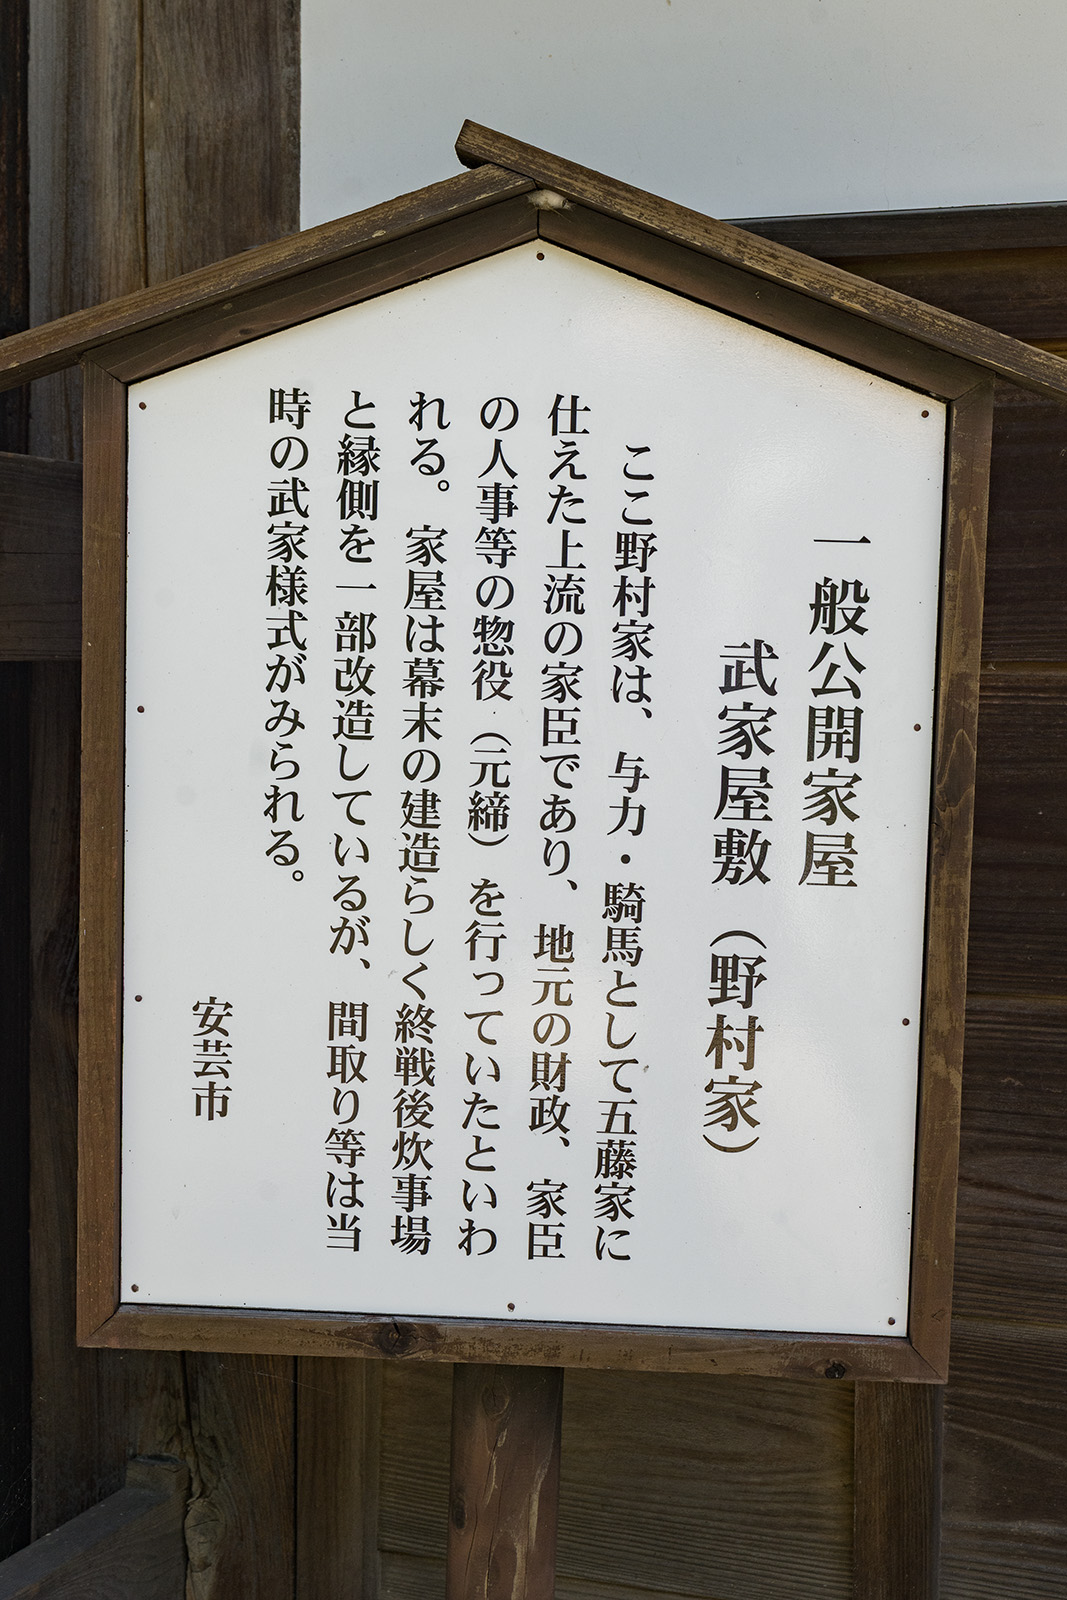 一般公開家屋
武家屋敷(野村家)
ここ野村家は、与力・騎馬として五藤家に
仕えた上流の家臣であり、地元の財政、家臣
の人事等の惣役(元締)を行っていたといわ
れる。家屋は幕末の建造らしく終戦後炊事場
と縁側を一部改造しているが、間取り等は当
時の武家様式がみられる。
安芸市